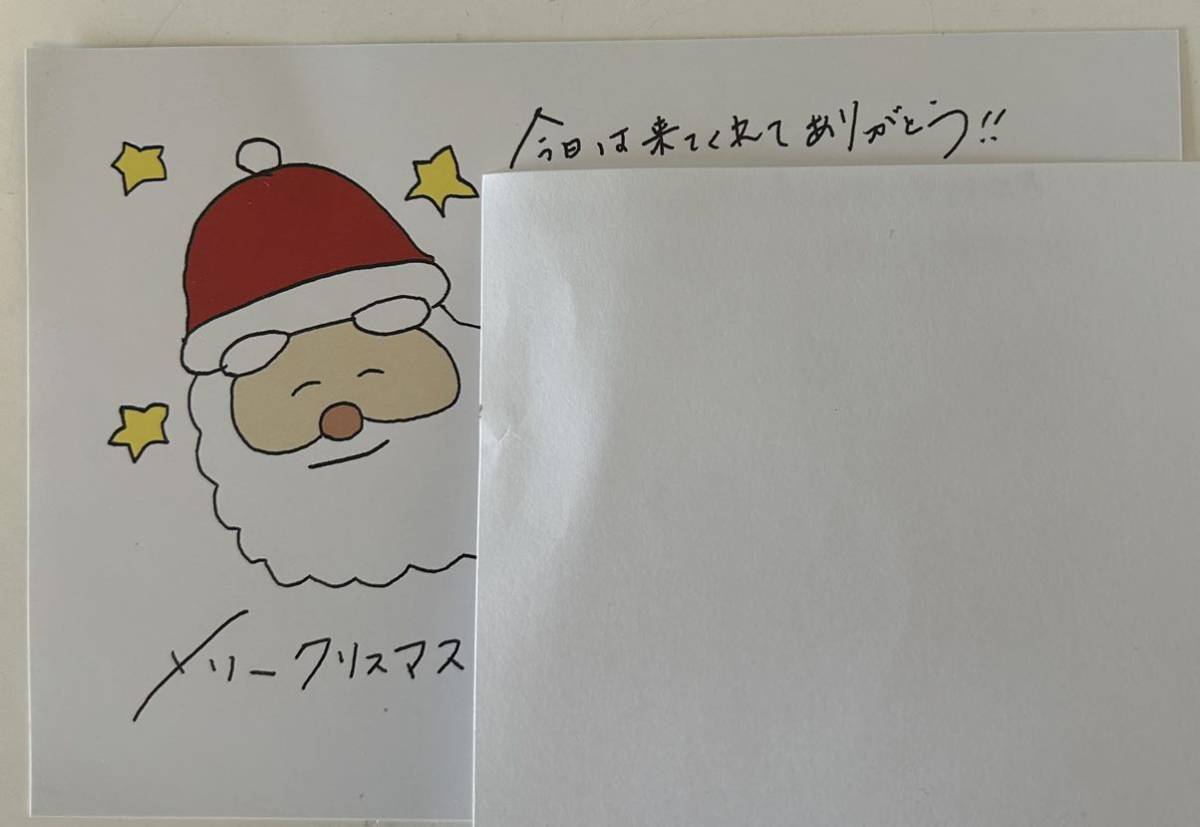 今日は来てくれてありがとう!!
メリークリスマス